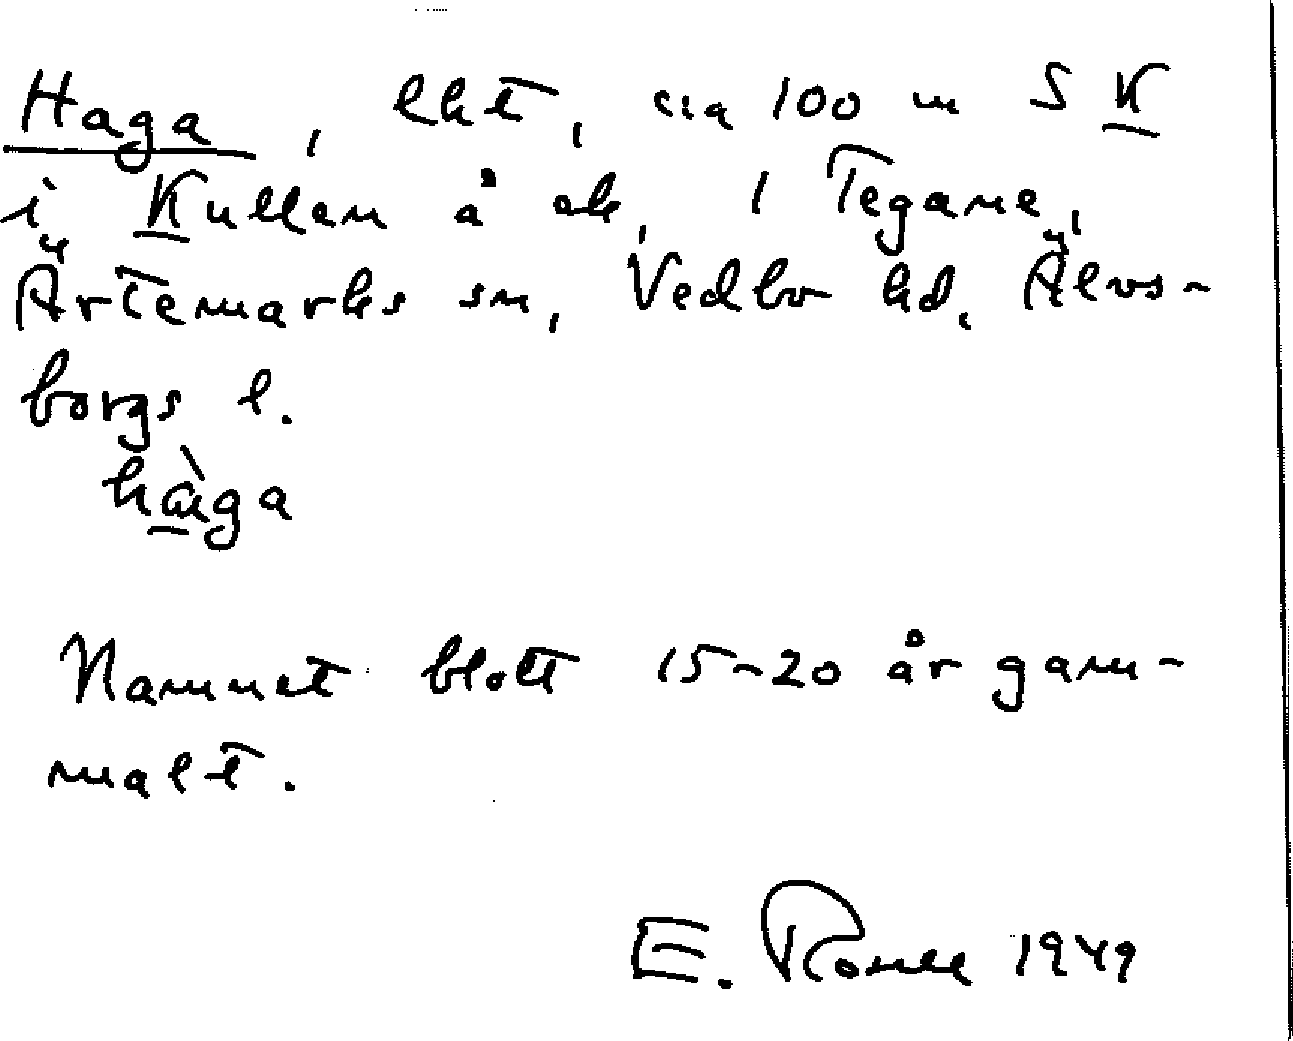 Haga, lht, cia 100 m S K
i Kullen å ek, 1 Tegane,
Ärtemarks sn, Vedbo hd, Älvs-
borgs l.
hàga
Namnet blott 15-20 år gam-
malt.
E. 1949